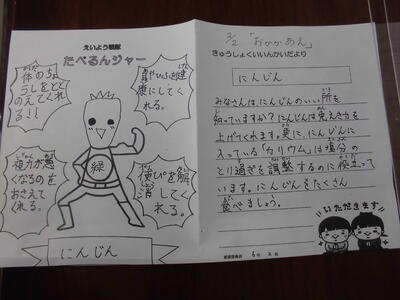 えいよう戦隊
たべるんジャー
体のちょうしをととのえてくれる!!
肌やひふを健康にしてくれる。
視力が悪くなるのをおさえてくれる。
便ぴを解消してくれる。
緑
にんじん
3/2 「おかかあえ」
きゅうしょくいいんかいだより
にんじん
みなさんは、にんじんのいい所を
知っていますか？にんじんは免えき力を
上げてくれます。更に、にんじんに
入っている「カリウム」は塩分の
とり過ぎを調整するのに役立って
います。にんじんをたくさん
食べましょう。
いただきます
給食委員会 6年